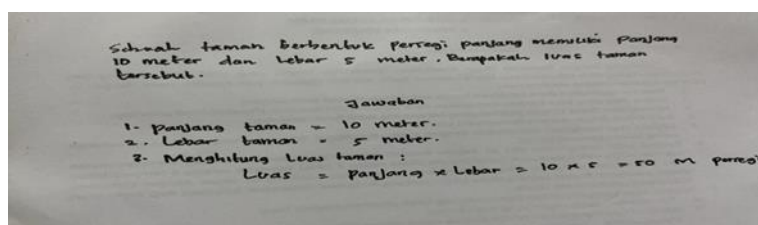 Sebuah taman berbentuk persegi panjang memiliki Panjang
10 meter dan Lebar 5 meter. Berapakah luas taman
tersebut.
Jawaban
1. Panjang taman = 10 meter.
2. Lebar taman = 5 meter.
3. Menghitung Luas taman :
Luas = Panjang x Lebar = 10 x 5 = 50 M persegi